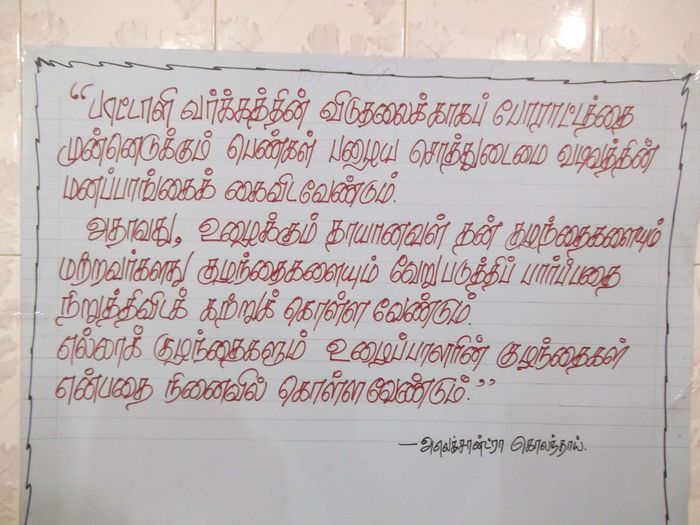 “பாட்டாளி வர்க்கத்தின் விடுதலைக்காகப் போராட்டத்தை
முன்னெடுக்கும் பெண்கள் பழைய சொத்துடைமை வடிவத்தின்
மனப்பாங்கைக் கைவிடவேண்டும்.
அதாவது, உழைக்கும் தாயானவள் தன் குழந்தைகளையும்
மற்றவர்களது குழந்தைகளையும் வேறுபடுத்திப் பார்ப்பதை
நிறுத்திவிடக் கற்றுக் கொள்ள வேண்டும்.
எல்லாக் குழந்தைகளும் உழைப்பாளரின் குழந்தைகள்
என்பதை நினைவில் கொள்ளவேண்டும்.”
—அலெக்சாண்ட்ரா கொலந்தாய்.